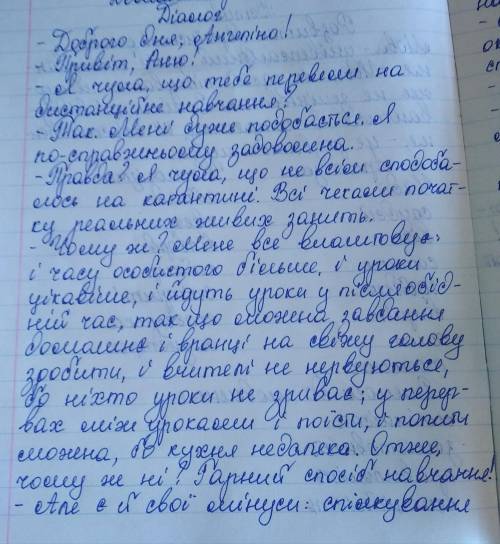 Діалог
- Доброго дня, Ангеліно!
- Привіт, Аню!
- Я чула, що тебе перевели на
дистанційне навчання?
- Так. Мені дуже подобається. Я
по-справжньому задоволена.
- Правда? Я чула, що не всім сподоба-
лось на карантині. Всі чекали почат-
ку реальних живих занять.
- Чому ж? Мене все влаштовує:
і часу особистого більше, і уроки
цікавіше, і йдуть уроки у післяобід-
ній час, так що можна завдання
домашнє і вранці на свіжу голову
зробити, і вчителі не нервуються,
бо ніхто уроки не зриває; у перер-
вах між уроками і поїсти, і попити
можна, бо кухня недалеко. Отже,
чому ж ні? Гарний спосіб навчання!
- Але є й свої мінуси: спілкування